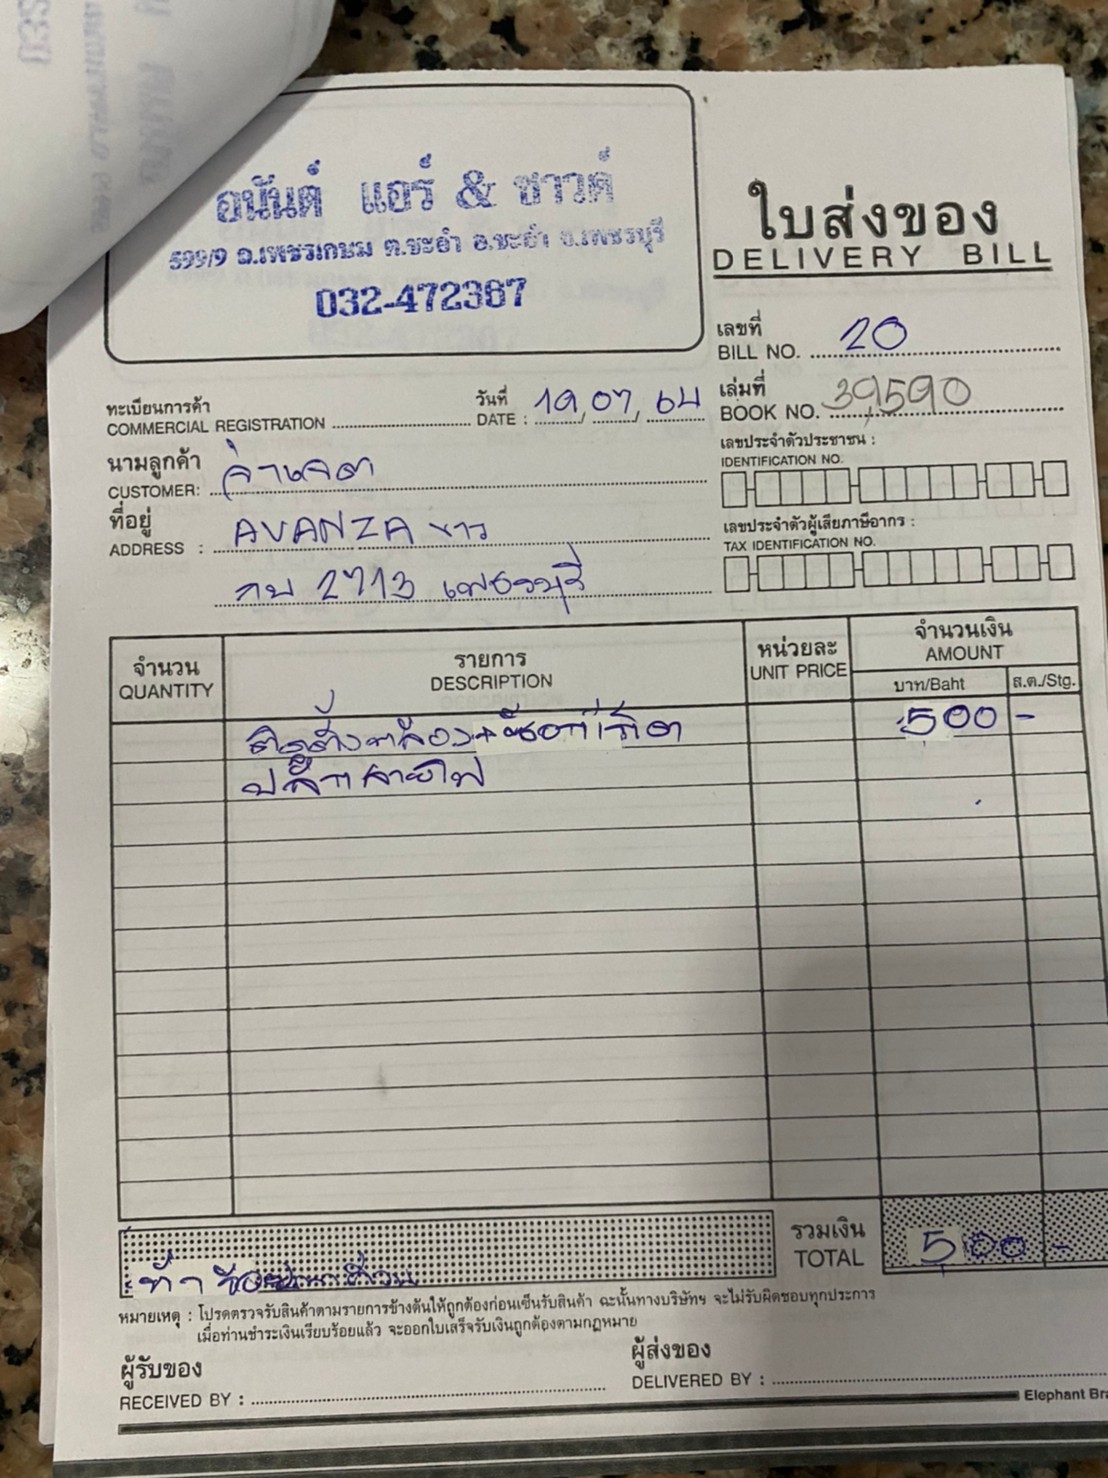 อนันต์ แอร์ & ซาวด์
599/9 ถ.เพชรเกษม ต.ชะอำ อ.ชะอำ จ.เพชรบุรี
032-472367
ใบส่งของ
DELIVERY BILL
เลขที่
BILL NO. 20
ทะเบียนการค้า
COMMERCIAL REGISTRATION
วันที่
DATE : 19/07/64
เล่มที่
BOOK NO. 39,590
นามลูกค้า
CUSTOMER: จ่าเจต
ที่อยู่
ADDRESS : AVANZA ขาว
กบ 2713 เพชรบุรี
เลขประจำตัวประชาชน :
IDENTIFICATION NO.
เลขประจำตัวผู้เสียภาษีอากร :
TAX IDENTIFICATION NO.
จำนวน
QUANTITY
รายการ
DESCRIPTION
หน่วยละ
UNIT PRICE
จำนวนเงิน
AMOUNT
บาท/Baht
ส.ต./Stg.
ติดตั้งกล้อง 500 -
สายไฟ
รวมเงิน
TOTAL
500 -
หมายเหตุ : โปรดตรวจรับสินค้าตามรายการข้างต้นให้ถูกต้องก่อนเซ็นรับสินค้า ฉะนั้นทางบริษัทฯ จะไม่รับผิดชอบทุกประการ
เมื่อท่านชำระเงินเรียบร้อยแล้ว จะออกใบเสร็จรับเงินถูกต้องตามกฎหมาย
ผู้รับของ
RECEIVED BY :
ผู้ส่งของ
DELIVERED BY :
Elephant Bra